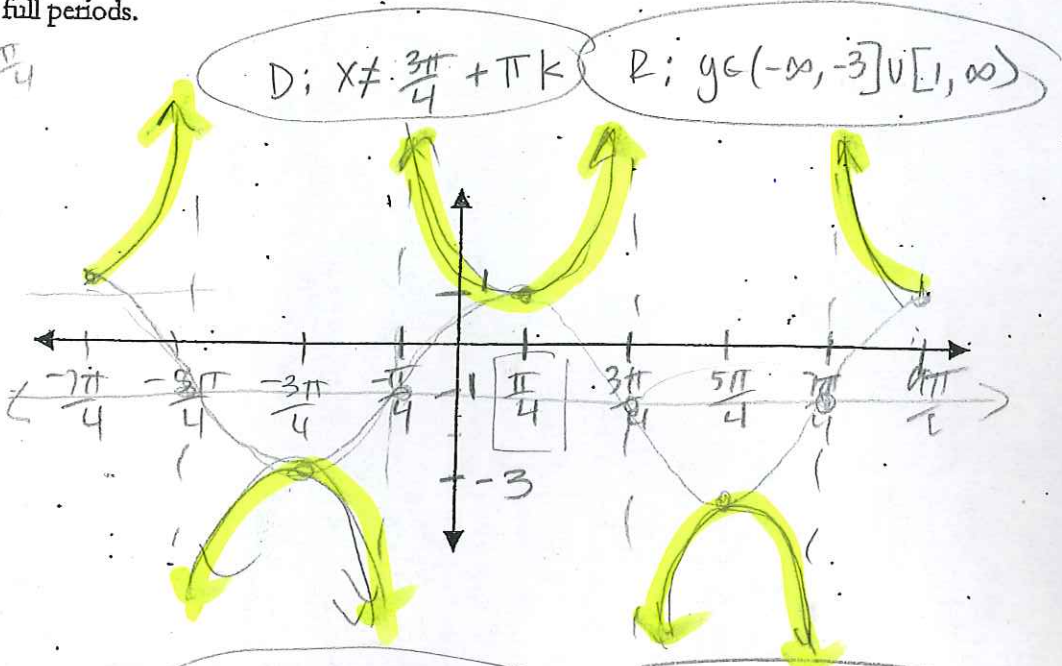 full periods.
π/4
D; X ≠ 3π/4 + πk R; y∈(-∞, -3]∪[1, ∞)
1
-7π/4 -3π/4 -π/4 -1 π/4 3π/4 5π/4 7π/4
-3